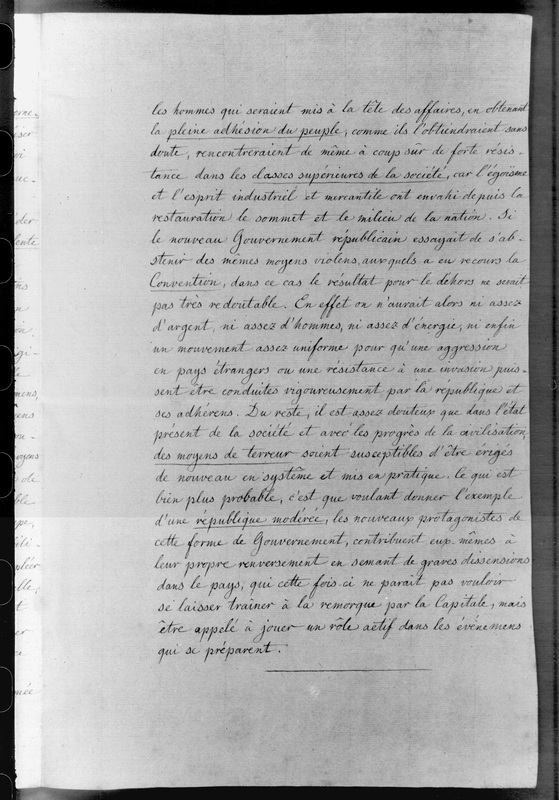 les hommes qui seraient mis à la tête des affaires, en obtenant
la pleine adhésion du peuple, comme ils l'obtiendraient sans
doute, rencontreraient de même à coup sûr de forte résis-
tance dans les classes supérieures de la société, car l'égoïsme
et l'esprit industriel et mercantile ont envahi depuis la
restauration le sommet et le milieu de la nation. Si
le nouveau Gouvernement républicain essayait de s'ab-
stenir des mêmes moyens violens, auxquels a eu recours la
Convention, dans ce cas le résultat pour le dehors ne serait
pas très redoutable. En effet on n'aurait alors ni assez
d'argent, ni assez d'hommes, ni assez d'énergie, ni enfin
un mouvement assez uniforme pour qu'une aggression
en pays étrangers ou une résistance à une invasion puis-
sent être conduites vigoureusement par la république et
ses adhérens. Du reste, il est assez douteux que dans l'état
présent de la société et avec les progrès de la civilisation,
des moyens de terreur soient susceptibles d'être érigés
de nouveau en système et mis en pratique. Ce qui est
bien plus probable, c'est que voulant donner l'exemple
d'une république modérée, les nouveaux protagonistes de
cette forme de Gouvernement, contribuent eux-mêmes à
leur propre renversement en semant de graves dissensions
dans le pays, qui cette fois-ci ne parait pas vouloir
se laisser traîner à la remorque par la Capitale, mais
être appelé à jouer un rôle actif dans les événemens
qui se préparent.